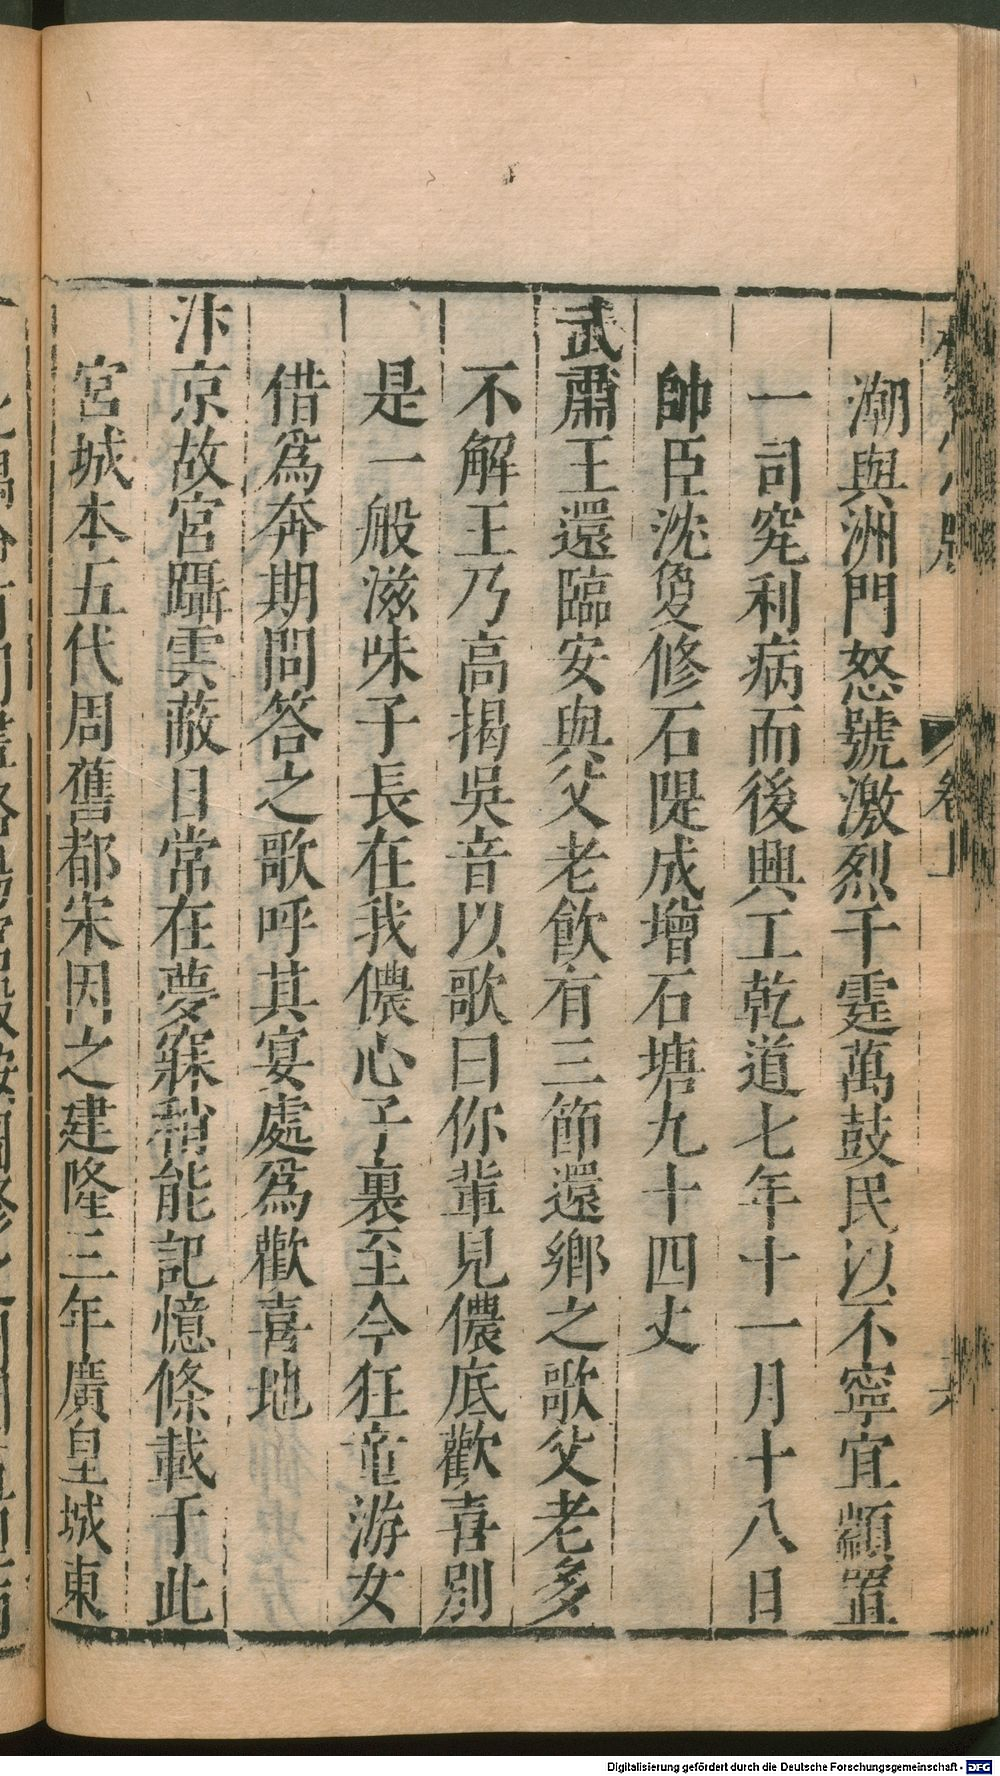 潮與洲門怒號激烈千霆萬鼓民以不寧宜顓置
一司究利病而後興工乾道七年十一月十八日
帥臣沈夐修石隄成增石塘九十四丈
武肅王還臨安與父老飲有三節還鄉之歌父老多
不解王乃高揭吳音以歌曰你輩見儂底歡喜別
是一般滋味子長在我儂心子裏至今狂童游女
借爲奔期問答之歌呼其宴處爲歡喜地
汴京故宮躡雲蔽日常在夢寐稍能記憶條載于此
宮城本五代周舊都宋因之建隆三年廣皇城東
Digitalisierung gefördert durch die Deutsche Forschungsgemeinschaft - DFG